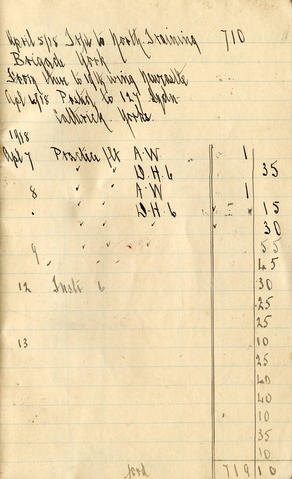 April 5/18 to North Training 710
Brigade York
From there to wing Newcastle
Apl 6/18 Posted to 127 Sqdn
Catterick Yorks
1918
Apl 7 Practice flt A.W 1
" " D.H.6 35
8 " " A.W 1
" " " D.H.6 15
" " " 30
9 " " " 55
" " " 45
12 Inst 6 30
25
25
13 10
25
40
40
10
35
10
ford 719 10